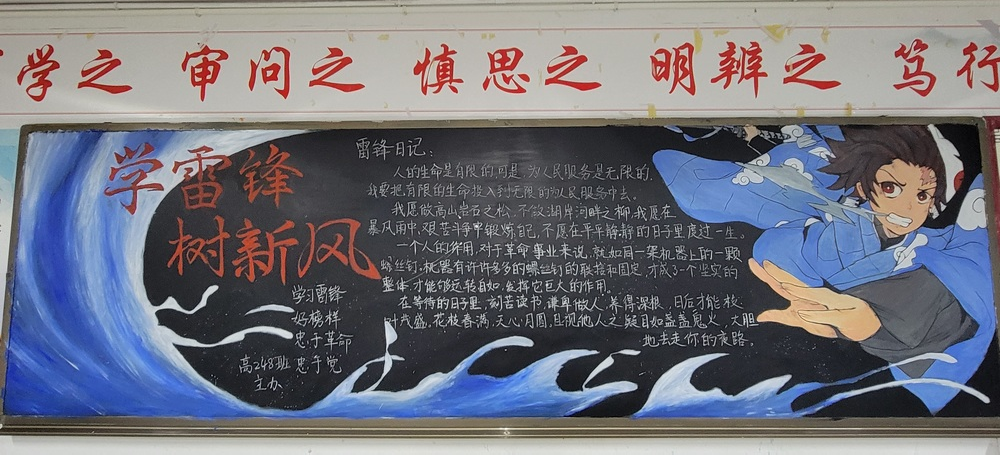 学之 审问之 慎思之 明辨之 笃行
学雷锋
树新风
学习雷锋
好榜样
忠于革命
忠于党
高248班
主办
雷锋日记：
人的生命是有限的,可是 为人民服务是无限的,
我要把有限的生命投入到无限的为人民服务中去。
我愿做高山岩石之松,不做湖岸河畔之柳,我愿在
暴风雨中,艰苦斗争中锻炼自己,不愿在平平静静的日子里度过一生。
一个人的作用,对于革命事业来说,就如同一架机器上的一颗
螺丝钉,机器有许许多多的螺丝钉的联接和固定,才成了一个坚实的
整体,才能够运转自如,发挥它巨人的作用。
在等待的日子里,刻苦读书,谦卑做人,养得深根,日后才能枝
叶茂盛。花枝春满,天心月圆,且视他人之疑目如盏盏鬼火,大胆
地去走你的夜路。